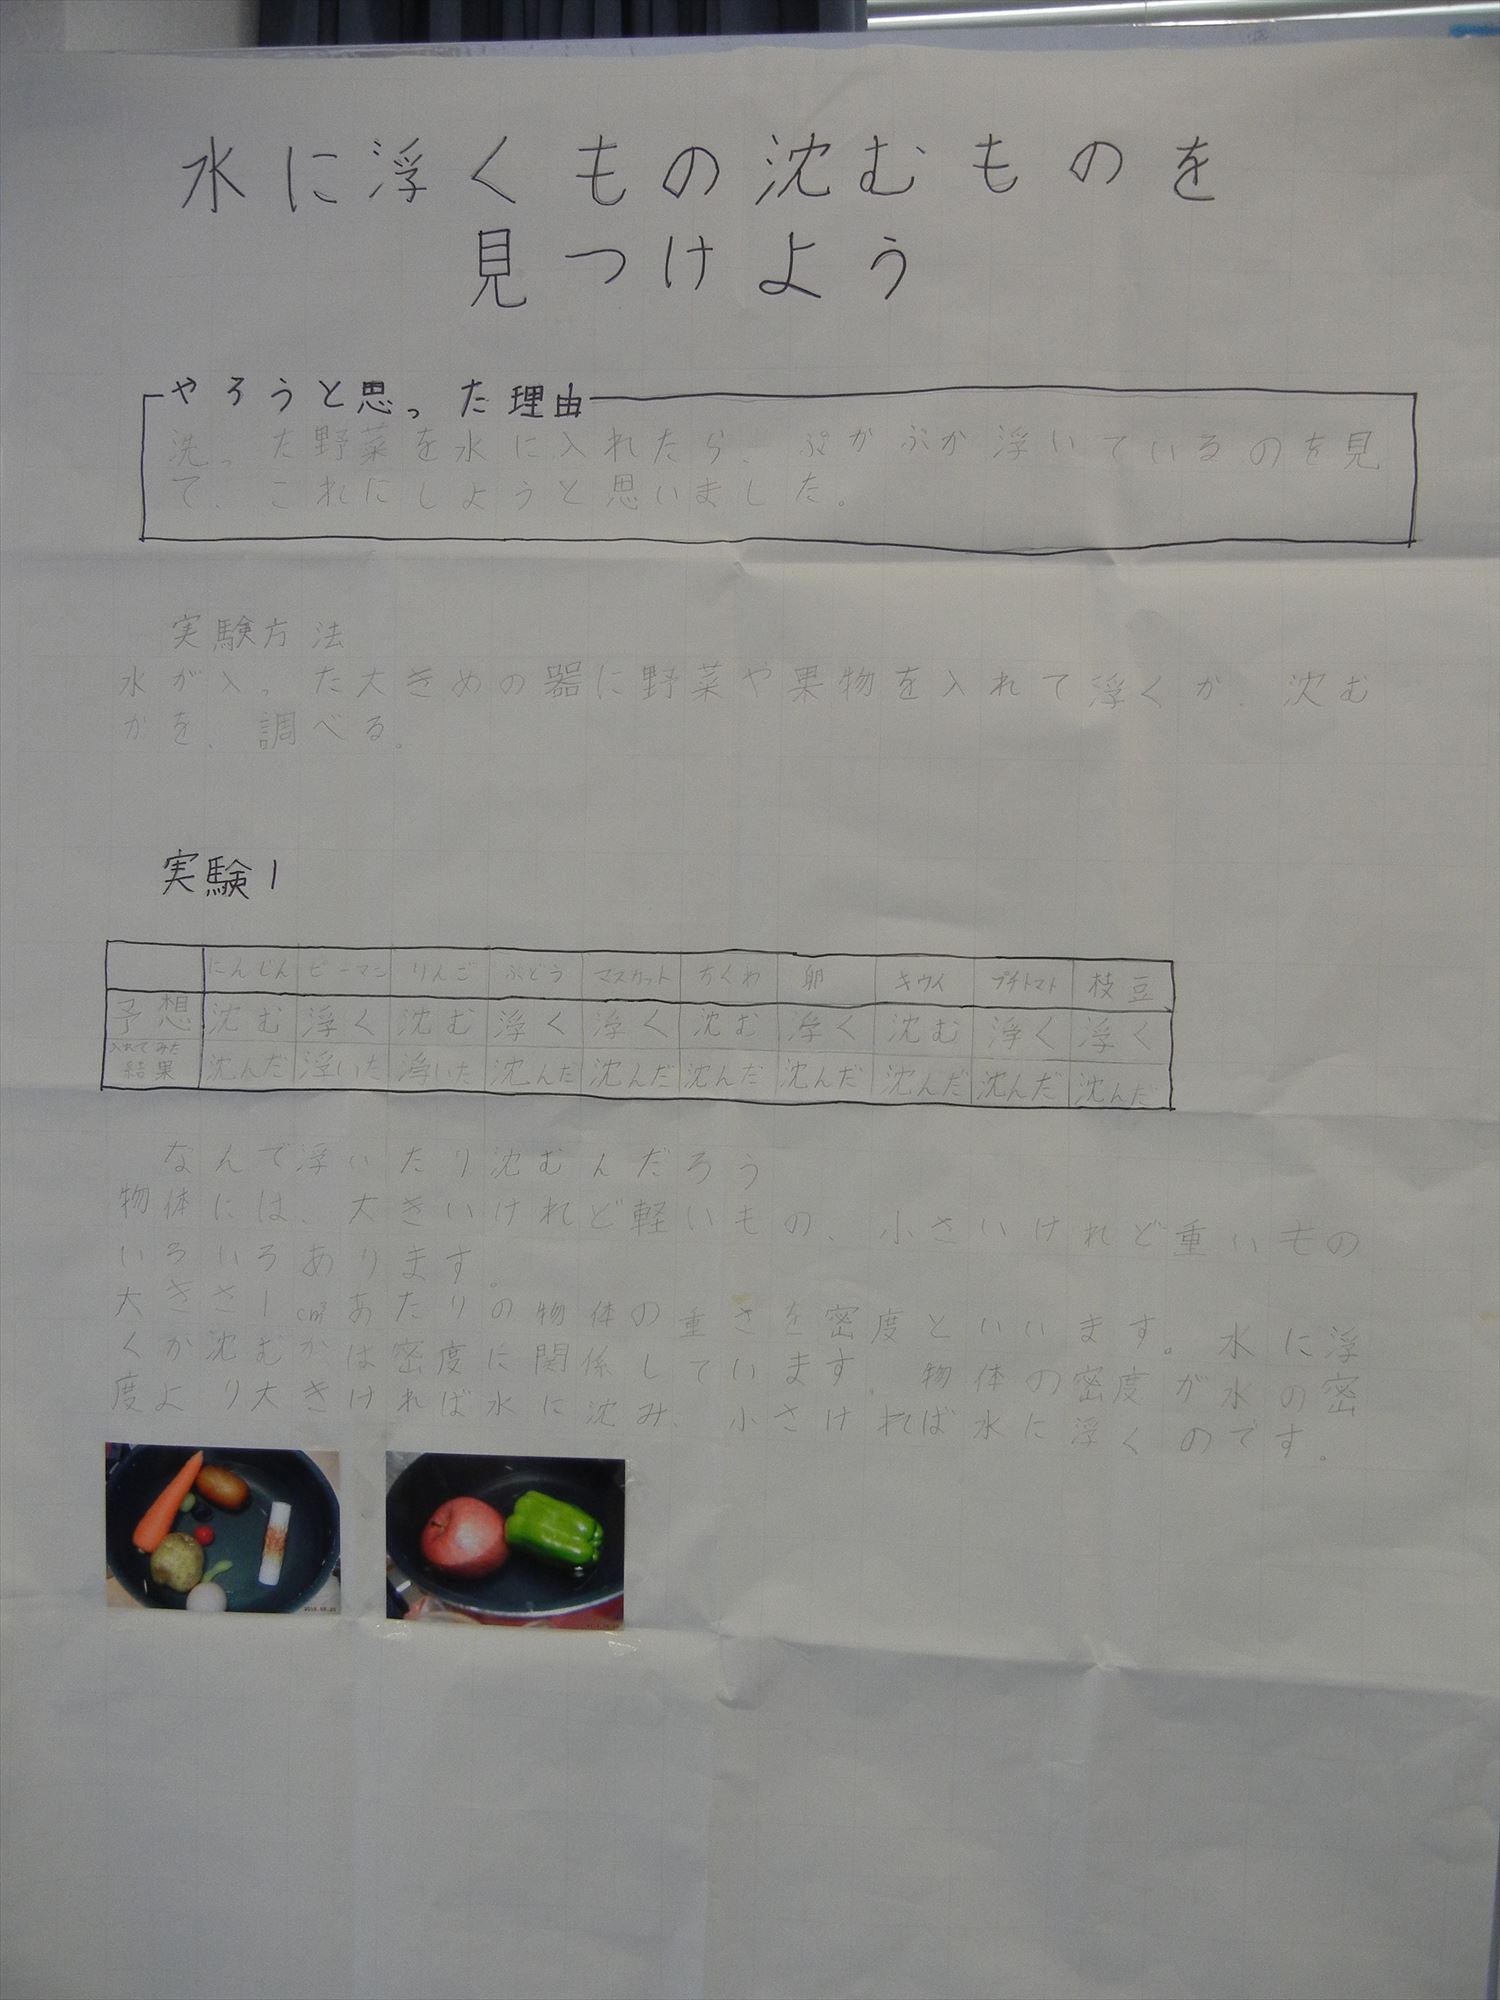 水に浮くもの沈むものを
見つけよう
やろうと思った理由
洗った野菜を水に入れたら、ぷかぷか浮いているのを見
て、これにしようと思いました。
実験方法
水が入った大きめの器に野菜や果物を入れて浮くか、沈む
かを、調べる。
実験1
にんじん ピーマン りんご ぶどう マスカット ちくわ 卵 キウイ プチトマト 枝豆
予想 沈む 浮く 沈む 浮く 浮く 沈む 浮く 沈む 浮く 浮く
入れてみた
結果 沈んだ 浮いた 浮いた 沈んだ 沈んだ 沈んだ 沈んだ 沈んだ 沈んだ 沈んだ
なんで浮いたり沈むんだろう
物体には、大きいけれど軽いもの、小さいけれど重いもの
いろいろあります。
大きさ1cm³あたりの物体の重さを密度といいます。水に浮
くか沈むかは密度に関係しています。物体の密度が水の密
度より大きければ水に沈み、小さければ水に浮くのです。